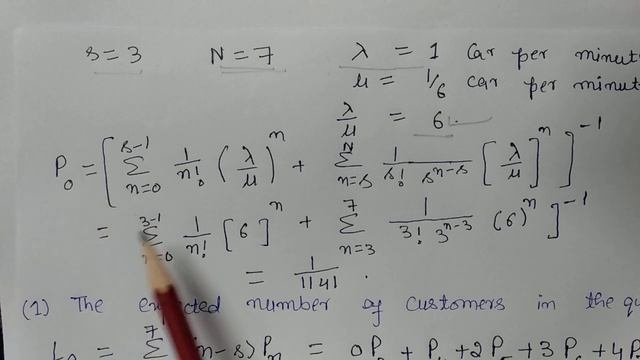 s = 3 N = 7 λ = 1 Car per minut
μ = 1/6 car per minut
λ/μ = 6.
P₀ = [ s-1 ∑ n=0 1/n! (λ/μ)^n + N ∑ n=s 1/(s! s^(n-s)) [λ/μ]^n ]^-1
= 3-1 ∑ n=0 1/n! [6]^n + 7 ∑ n=3 1/(3! 3^(n-3)) (6)^n ]^-1
= 1/1141 .
(1) The expected number of customers in the qu
7 ∑ n-s) Pn = 0P + P + 2P + 3P + 4P